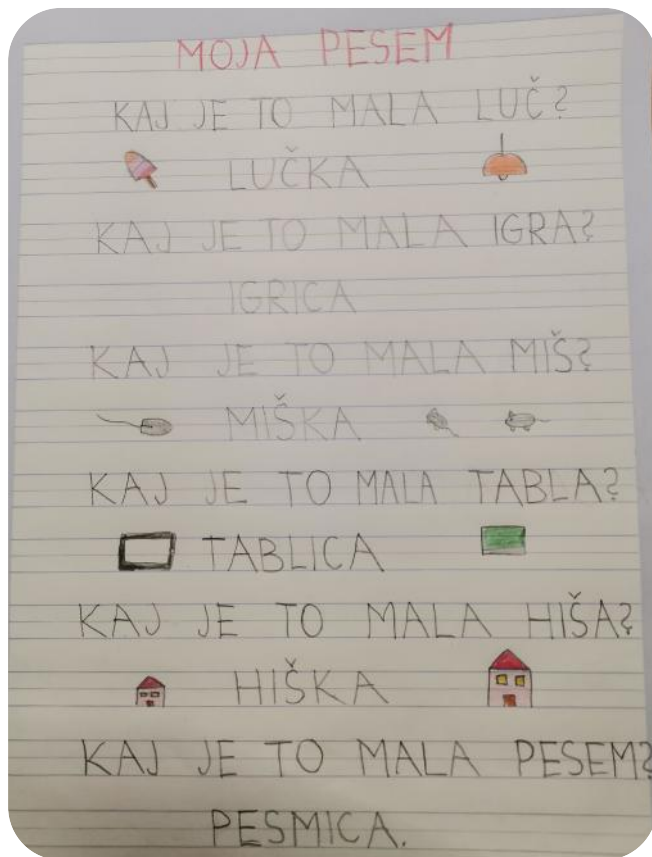 MOJA PESEM
KAJ JE TO MALA LUČ?
LUČKA
KAJ JE TO MALA IGRA?
IGRICA
KAJ JE TO MALA MIŠ?
MIŠKA
KAJ JE TO MALA TABLA?
TABLICA
KAJ JE TO MALA HIŠA?
HIŠKA
KAJ JE TO MALA PESEM?
PESMICA.